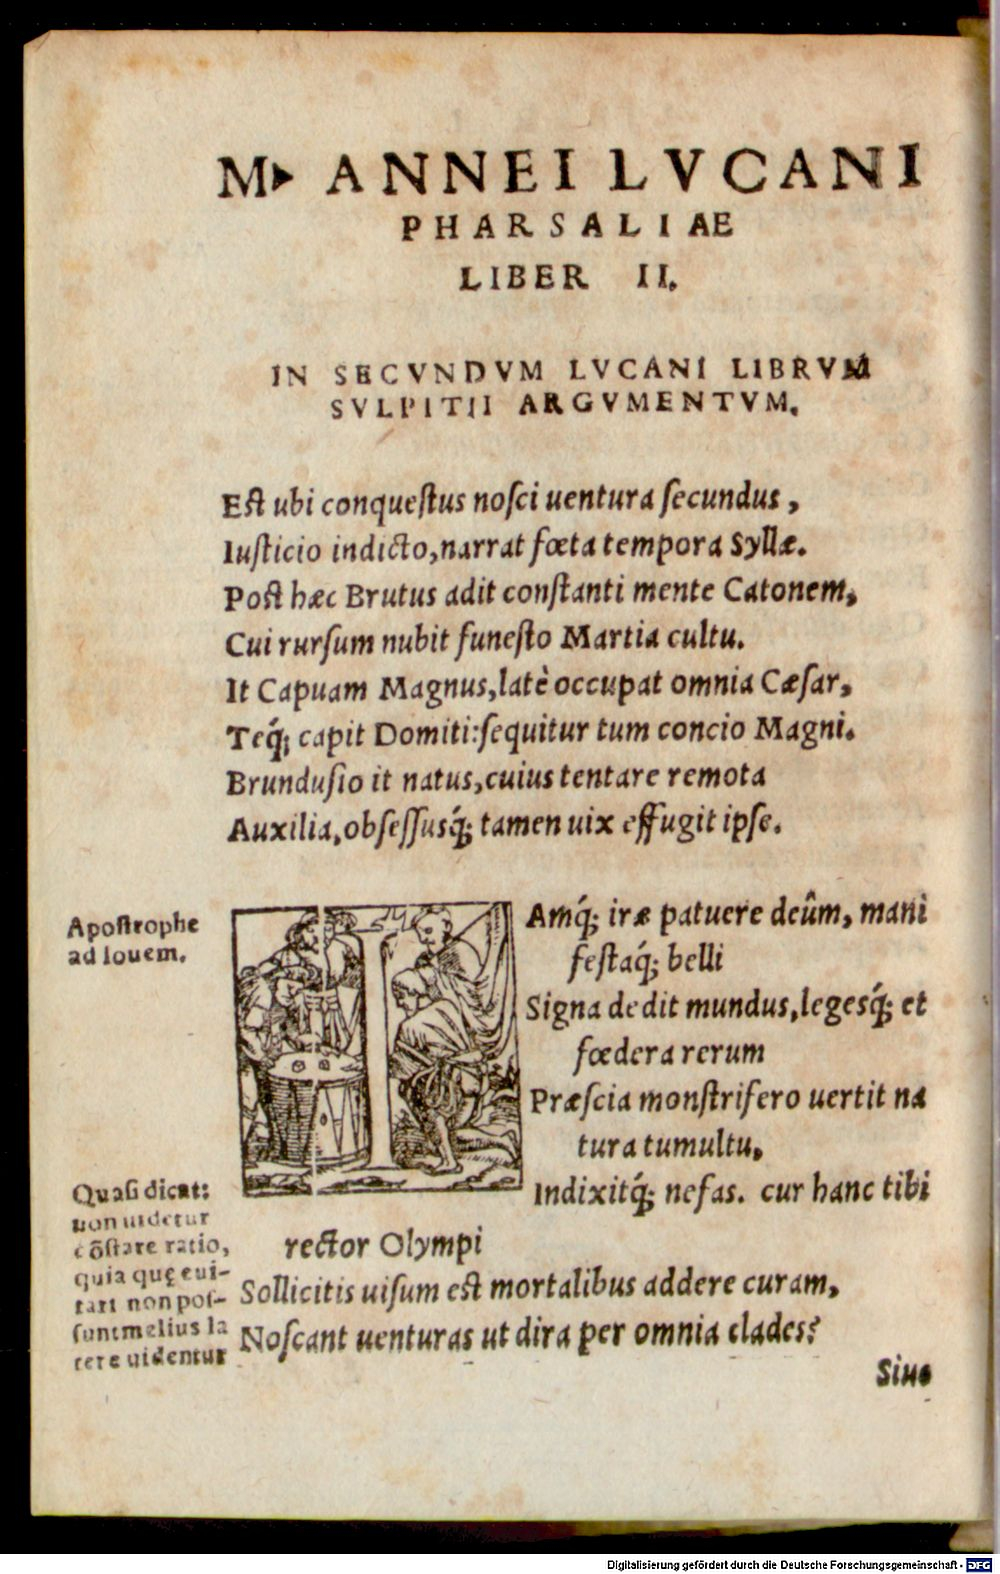 M. ANNEI LVCANI
PHARSALIAE
LIBER II.
IN SECVNDVM LVCANI LIBRVM
SVLPITII ARGVMENTVM.
Est ubi conquestus nosci uentura secundus,
Iusticio indicto, narrat fœta tempora Syllæ.
Post hæc Brutus adit constanti mente Catonem,
Cui rursum nubit funesto Martia cultu.
It Capuam Magnus, latè occupat omnia Cæsar,
Teq́; capit Domiti: sequitur tum concio Magni.
Brundusio it natus, cuius tentare remota
Auxilia, obsessusq́; tamen uix effugit ipse.
Apostrophe
ad Iouem.
IAmq́; iræ patuere deûm, mani
festaq́; belli
Signa dedit mundus, legesq́; et
fœdera rerum
Præscia monstrifero uertit na
tura tumultu,
Indixitq́; nefas. cur hanc tibi
rector Olympi
Sollicitis uisum est mortalibus addere curam,
Noscant uenturas ut dira per omnia clades?
Quasi dicat:
non uidetur
cõstare ratio,
quia quę eui-
tari non pos-
sunt melius la
tere uidentur
Siue
Digitalisierung gefördert durch die Deutsche Forschungsgemeinschaft - DFG